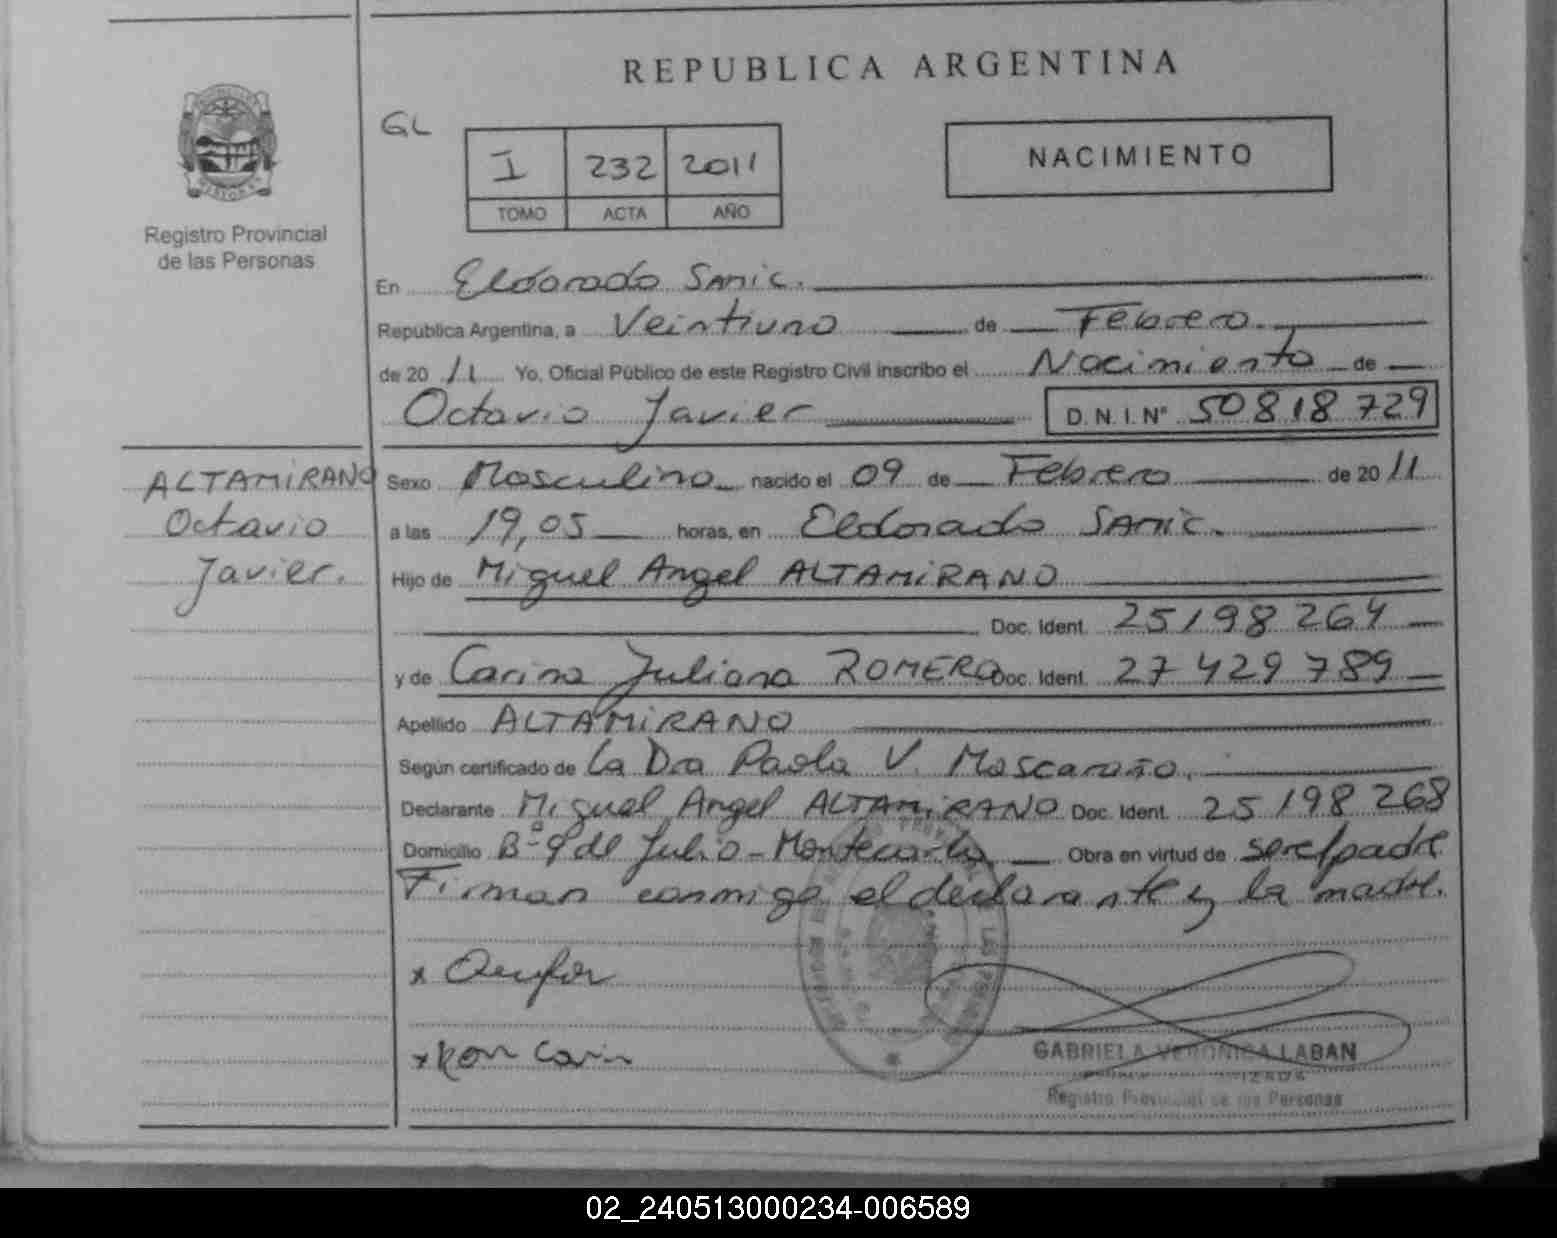 REPUBLICA ARGENTINA
GL
I 232 2011
TOMO ACTA AÑO
NACIMIENTO
Registro Provincial
de las Personas
En Eldorado Samic.
República Argentina, a Veintiuno de Febrero.
de 20 11 Yo, Oficial Público de este Registro Civil inscribo el Nacimiento de
Octavio Javier D.N.I.Nº 50818729
ALTAMIRANO
Octavio
Javier.
Sexo Masculino nacido el 09 de Febrero de 20 11
a las 19,05 horas, en Eldorado Samic.
Hijo de Miguel Angel ALTAMIRANO
Doc. Ident. 25198264
y de Carina Juliana ROMERO Doc. Ident. 27429789
Apellido ALTAMIRANO
Según certificado de La Dra Paola V.
Declarante Miguel Angel ALTAMIRANO Doc. Ident. 25198268
Domicilio Bº 9 de Julio - Montecarlo Obra en virtud de ser el padre
Firman conmigo el declarante y la madre.
GABRIELA VERONICA LABAN
Registro Provincial de las Personas
02_240513000234-006589